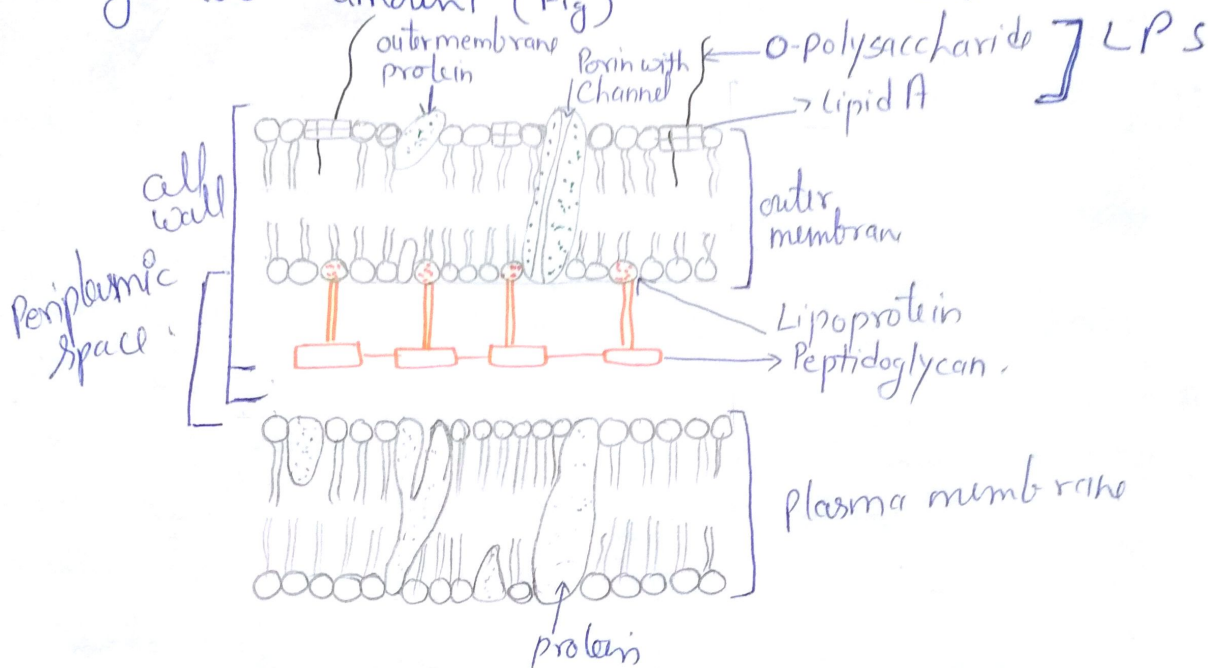 amount (Fig)
outermembrane
protein
Porin with
Channel
O-polysaccharide
LPS
Lipid A
cell
wall
outer
membran
Periplasmic
space
Lipoprotein
Peptidoglycan.
Plasma membrane
protein